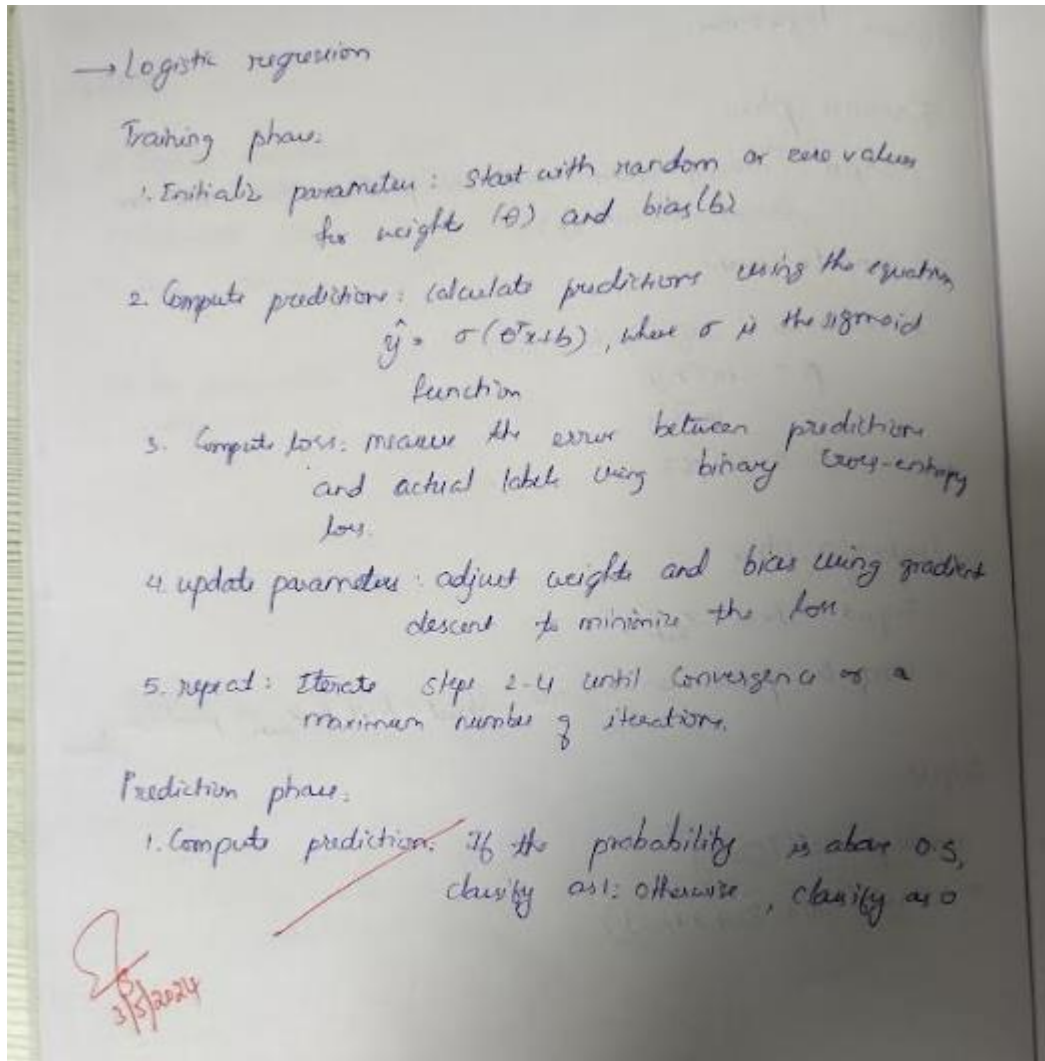 → Logistic regression
Training phase:
1. Initializ parameters: start with random or zero values
for weights (θ) and bias (b)
2. Compute predictions: calculate predictions using the equation
ŷ = σ(θᵀx+b), where σ is the sigmoid
function
3. Compute loss: measure the error between predictions
and actual labels using binary cross-entropy
loss.
4. update parameters: adjust weights and bias using gradient
descent to minimize the loss
5. repeat: Iterate steps 2-4 until convergence or a
maximum number of iterations.
Prediction phase:
1. Compute prediction: If the probability is above 0.5,
classify as 1: otherwise, classify as 0
3/5/2024